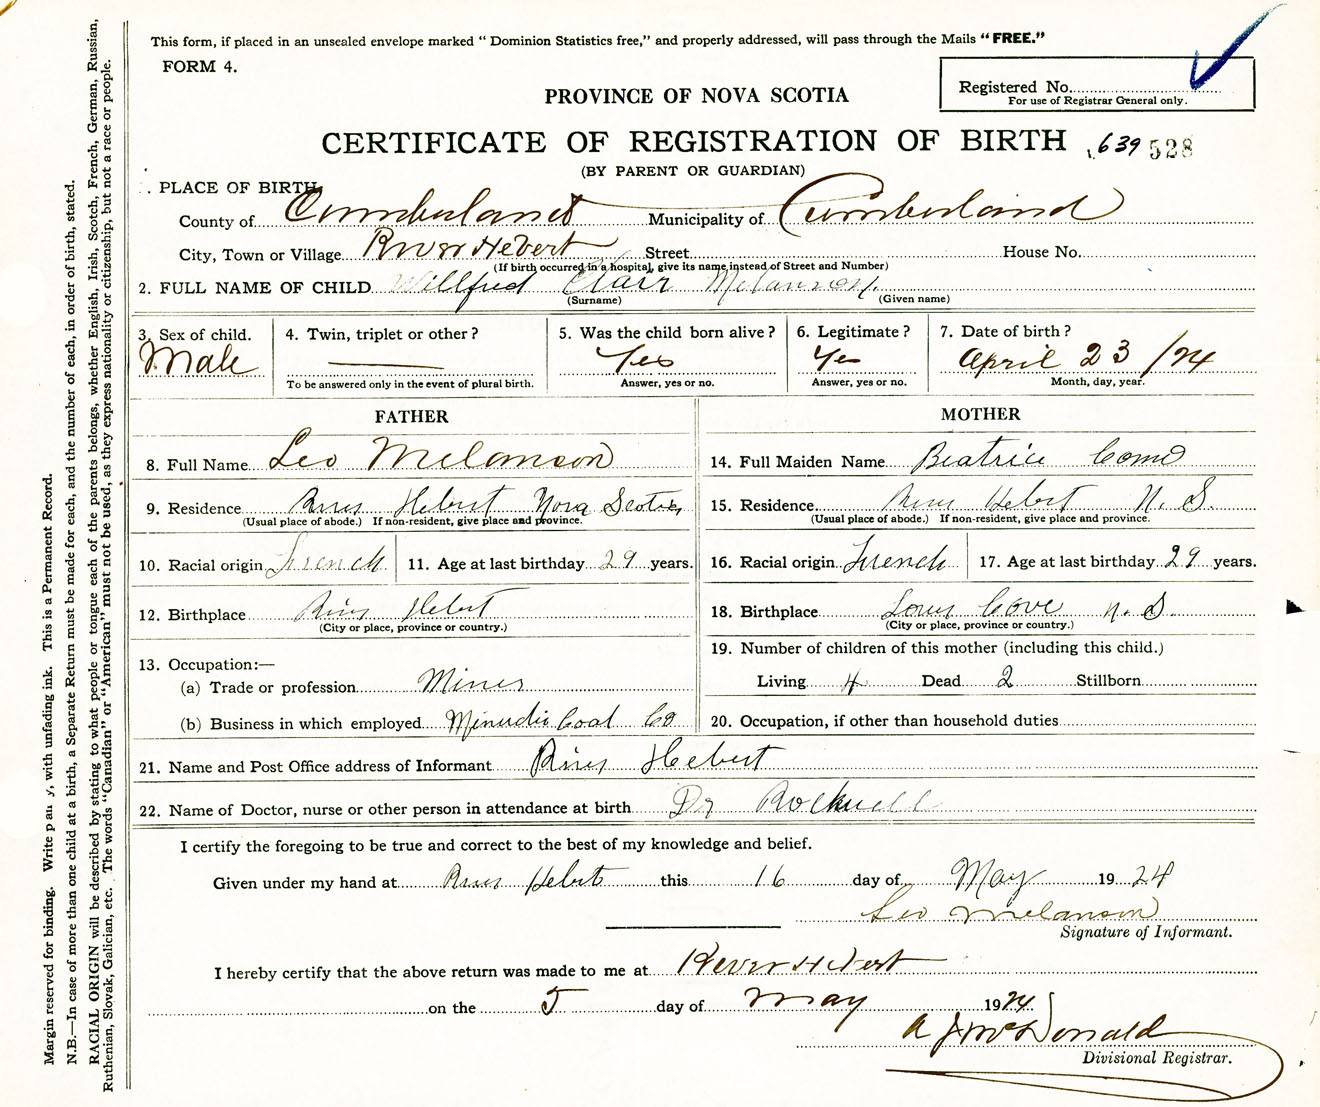 This form, if placed in an unsealed envelope marked “ Dominion Statistics free,” and properly addressed, will pass through the Mails “FREE.”
FORM 4.
Registered No.
For use of Registrar General only.
PROVINCE OF NOVA SCOTIA
CERTIFICATE OF REGISTRATION OF BIRTH 639 528
(BY PARENT OR GUARDIAN)
. PLACE OF BIRTH
County of Cumberland Municipality of Cumberland
City, Town or Village River Hebert Street House No.
(If birth occurred in a hospital, give its name instead of Street and Number)
2. FULL NAME OF CHILD Willfred Clair Melanson
(Surname) (Given name)
3. Sex of child. 4. Twin, triplet or other ? 5. Was the child born alive ? 6. Legitimate ? 7. Date of birth ?
Male Yes Yes April 23 /24
To be answered only in the event of plural birth. Answer, yes or no. Answer, yes or no. Month, day, year.
FATHER MOTHER
8. Full Name Leo Melanson 14. Full Maiden Name Beatrice
9. Residence River Hebert Nova Scotia 15. Residence River Hebert N. S.
(Usual place of abode.) If non-resident, give place and province. (Usual place of abode.) If non-resident, give place and province.
10. Racial origin French 11. Age at last birthday 29 years. 16. Racial origin French 17. Age at last birthday 29 years.
12. Birthplace River Hebert 18. Birthplace Cove N. S
(City or place, province or country.) (City or place, province or country.)
19. Number of children of this mother (including this child.)
13. Occupation:—
(a) Trade or profession Miner Living 4 Dead 2 Stillborn
(b) Business in which employed Minudie Coal Co 20. Occupation, if other than household duties
21. Name and Post Office address of Informant River Hebert
22. Name of Doctor, nurse or other person in attendance at birth Dr Rockwell
I certify the foregoing to be true and correct to the best of my knowledge and belief.
Given under my hand at River Hebert this 16 day of May 1924
Leo Melanson
Signature of Informant.
I hereby certify that the above return was made to me at River Hebert
on the 5 day of May 1924
A J McDonald
Divisional Registrar.
Margin reserved for binding. Write plainly, with unfading ink. This is a Permanent Record.
N.B.—In case of more than one child at a birth, a Separate Return must be made for each, and the number of each, in order of birth, stated.
RACIAL ORIGIN will be described by stating to what people or tongue each of the parents belongs, whether English, Irish, Scotch, French, German, Russian,
Ruthenian, Slovak, Galician, etc. The words “Canadian” or “American” must not be used, as they express nationality or citizenship, but not a race or people.